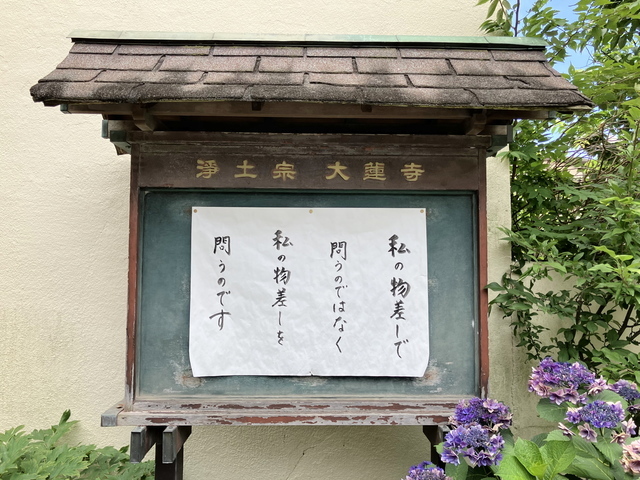 淨土宗 大蓮寺
私の物差しで
問うのではなく
私の物差しを
問うのです